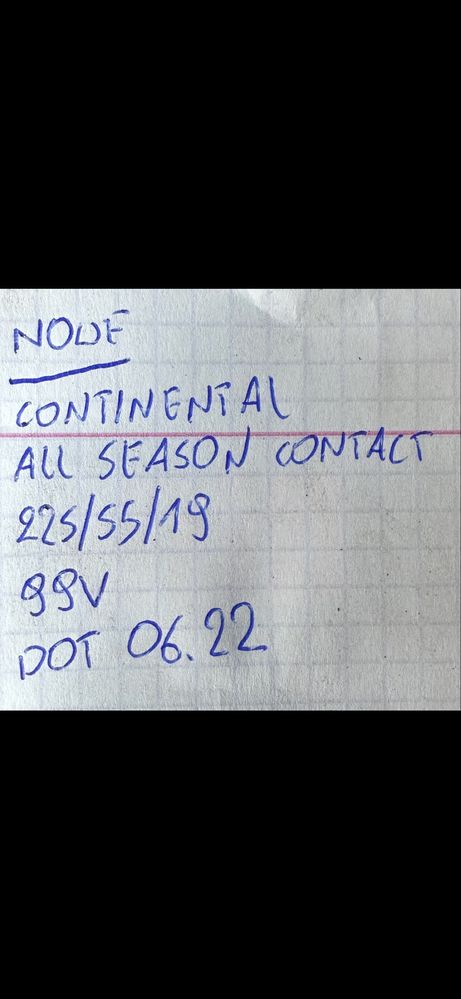 NOWE
CONTINENTAL
ALL SEASON CONTACT
225/55/19
99V
DOT 06.22